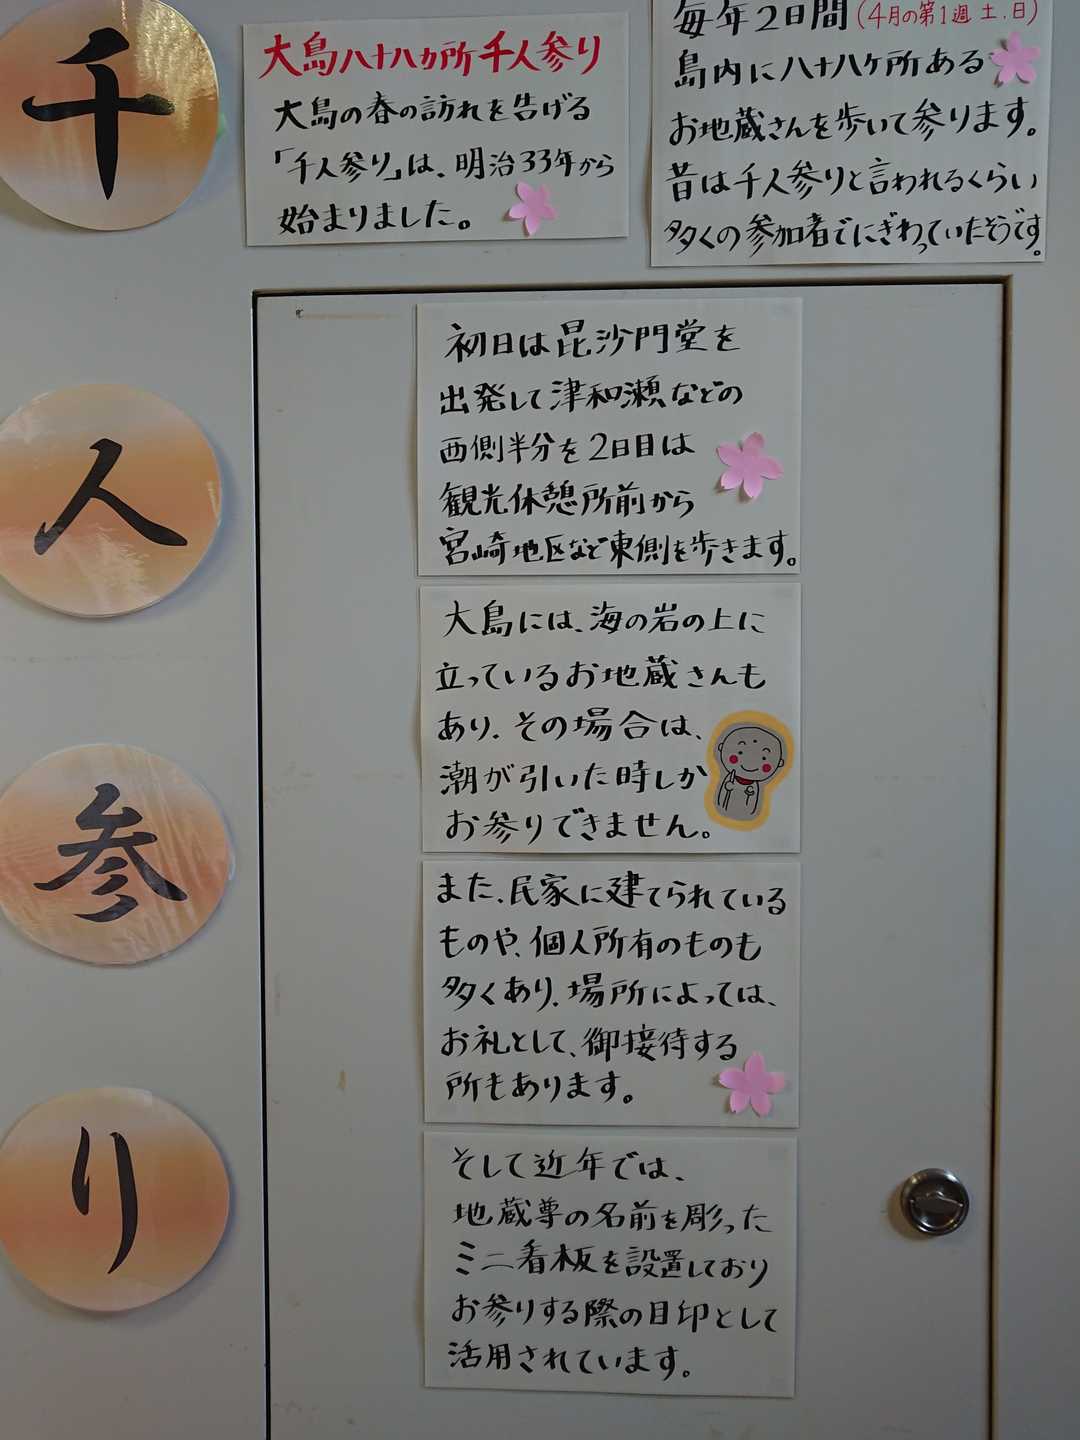 千
人
参
り
大島八十八カ所千人参り
大島の春の訪れを告げる
「千人参り」は、明治33年から
始まりました。
毎年2日間(4月の第1週 土.日)
島内に八十八ヶ所ある
お地蔵さんを歩いて参ります。
昔は千人参りと言われるくらい
多くの参加者でにぎわっていたそうです。
初日は毘沙門堂を
出発して津和瀬などの
西側半分を2日目は
観光休憩所前から
宮崎地区など東側を歩きます。
大島には、海の岩の上に
立っているお地蔵さんも
あり、その場合は、
潮が引いた時しか
お参りできません。
また、民家に建てられている
ものや、個人所有のものも
多くあり、場所によっては、
お礼として、御接待する
所もあります。
そして近年では、
地蔵尊の名前を彫った
ミニ看板を設置しており
お参りする際の目印として
活用されています。